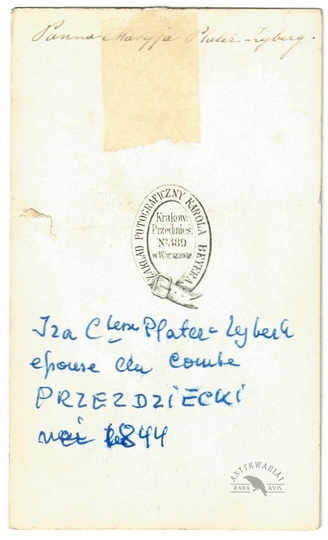 Panna Maryja Plater-Zyberg.
ZAKŁAD FOTOGRAFICZNY KAROLA BEYERA
Krakow:
Przedmies:
No 389
w Warszawie
Iza Ctesse Plater-Zyberk
épouse du Comte
PRZEZDZIECKI
1844
ANTYKWARIAT
RARA AVIS